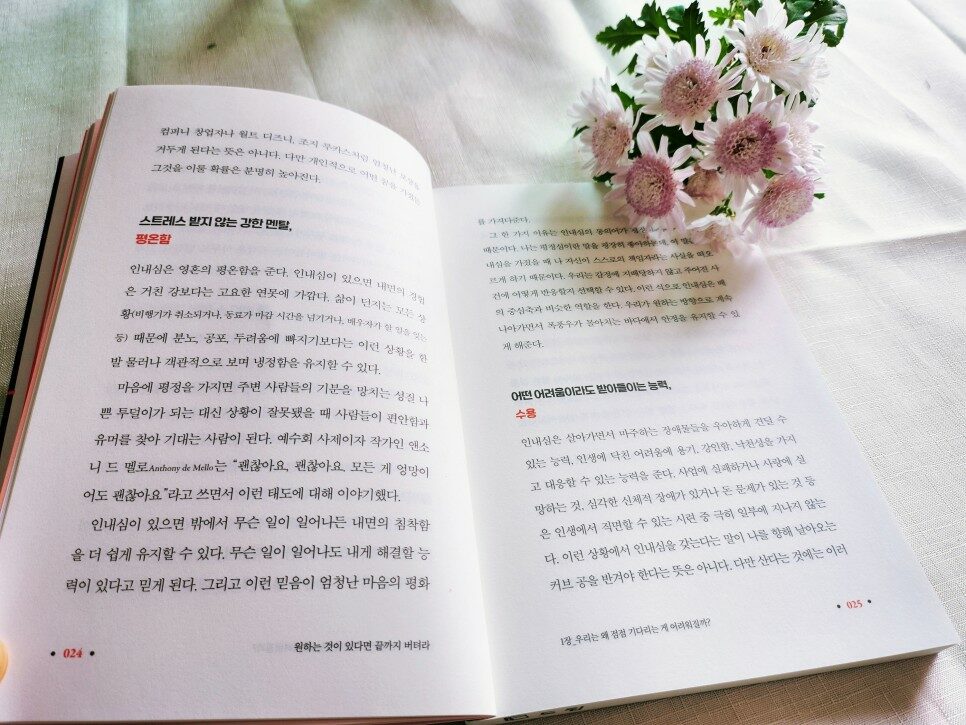 컴퍼니 창업자나 월트 디즈니, 조지 루카스처럼 엄청난 보상을
거두게 된다는 뜻은 아니다. 다만 개인적으로 어떤 꿈을
그것을 이룰 확률은 분명히 높아진다.
스트레스 받지 않는 강한 멘탈,
평온함
인내심은 영혼의 평온함을 준다. 인내심이 있으면 내면의 경험
은 거친 강보다는 고요한 연못에 가깝다. 삶이 던지는 모든 상
황(비행기가 취소되거나, 동료가 마감 시간을 넘기거나, 배우자가 할 일을 잊는
등) 때문에 분노, 공포, 두려움에 빠지기보다는 이런 상황을 한
발 물러나 객관적으로 보며 냉정함을 유지할 수 있다.
마음에 평정을 가지면 주변 사람들의 기분을 망치는 성질 나
쁜 투덜이가 되는 대신 상황이 잘못됐을 때 사람들이 편안함과
유머를 찾아 기대는 사람이 된다. 예수회 사제이자 작가인 앤소
니 드 멜로Anthony de Mello는 “괜찮아요, 괜찮아요. 모든 게 엉망이
어도 괜찮아요”라고 쓰면서 이런 태도에 대해 이야기했다.
인내심이 있으면 밖에서 무슨 일이 일어나든 내면의 침착함
을 더 쉽게 유지할 수 있다. 무슨 일이 일어나도 내게 해결할 능
력이 있다고 믿게 된다. 그리고 이런 믿음이 엄청난 마음의 평화
• 024 •
원하는 것이 있다면 끝까지 버텨라
를 가져다준다.
그 한 가지 이유는 인내심의 동의어가 평정
때문이다. 나는 평정심이란 말을 굉장히 좋아하는데,
내심을 가졌을 때 나 자신이 스스로의 책임자라는 사실을 떠오
르게 하기 때문이다. 우리는 감정에 지배당하지 않고 주어진 사
건에 어떻게 반응할지 선택할 수 있다. 이런 식으로 인내심은 배
의 중심축과 비슷한 역할을 한다. 우리가 원하는 방향으로 계속
나아가면서 폭풍우가 몰아치는 바다에서 안정을 유지할 수 있
게 해준다.
어떤 어려움이라도 받아들이는 능력,
수용
인내심은 살아가면서 마주하는 장애물들을 우아하게 견딜 수
있는 능력, 인생에 닥친 어려움에 용기, 강인함, 낙천성을 가지
고 대응할 수 있는 능력을 준다. 사업에 실패하거나 사랑에 실
망하는 것, 심각한 신체적 장애가 있거나 돈 문제가 있는 것 등
은 인생에서 직면할 수 있는 시련 중 극히 일부에 지나지 않는
다. 이런 상황에서 인내심을 갖는다는 말이 나를 향해 날아오는
커브 공을 반겨야 한다는 뜻은 아니다. 다만 산다는 것에는 이러
1장_우리는 왜 점점 기다리는 게 어려워질까?
• 025 •